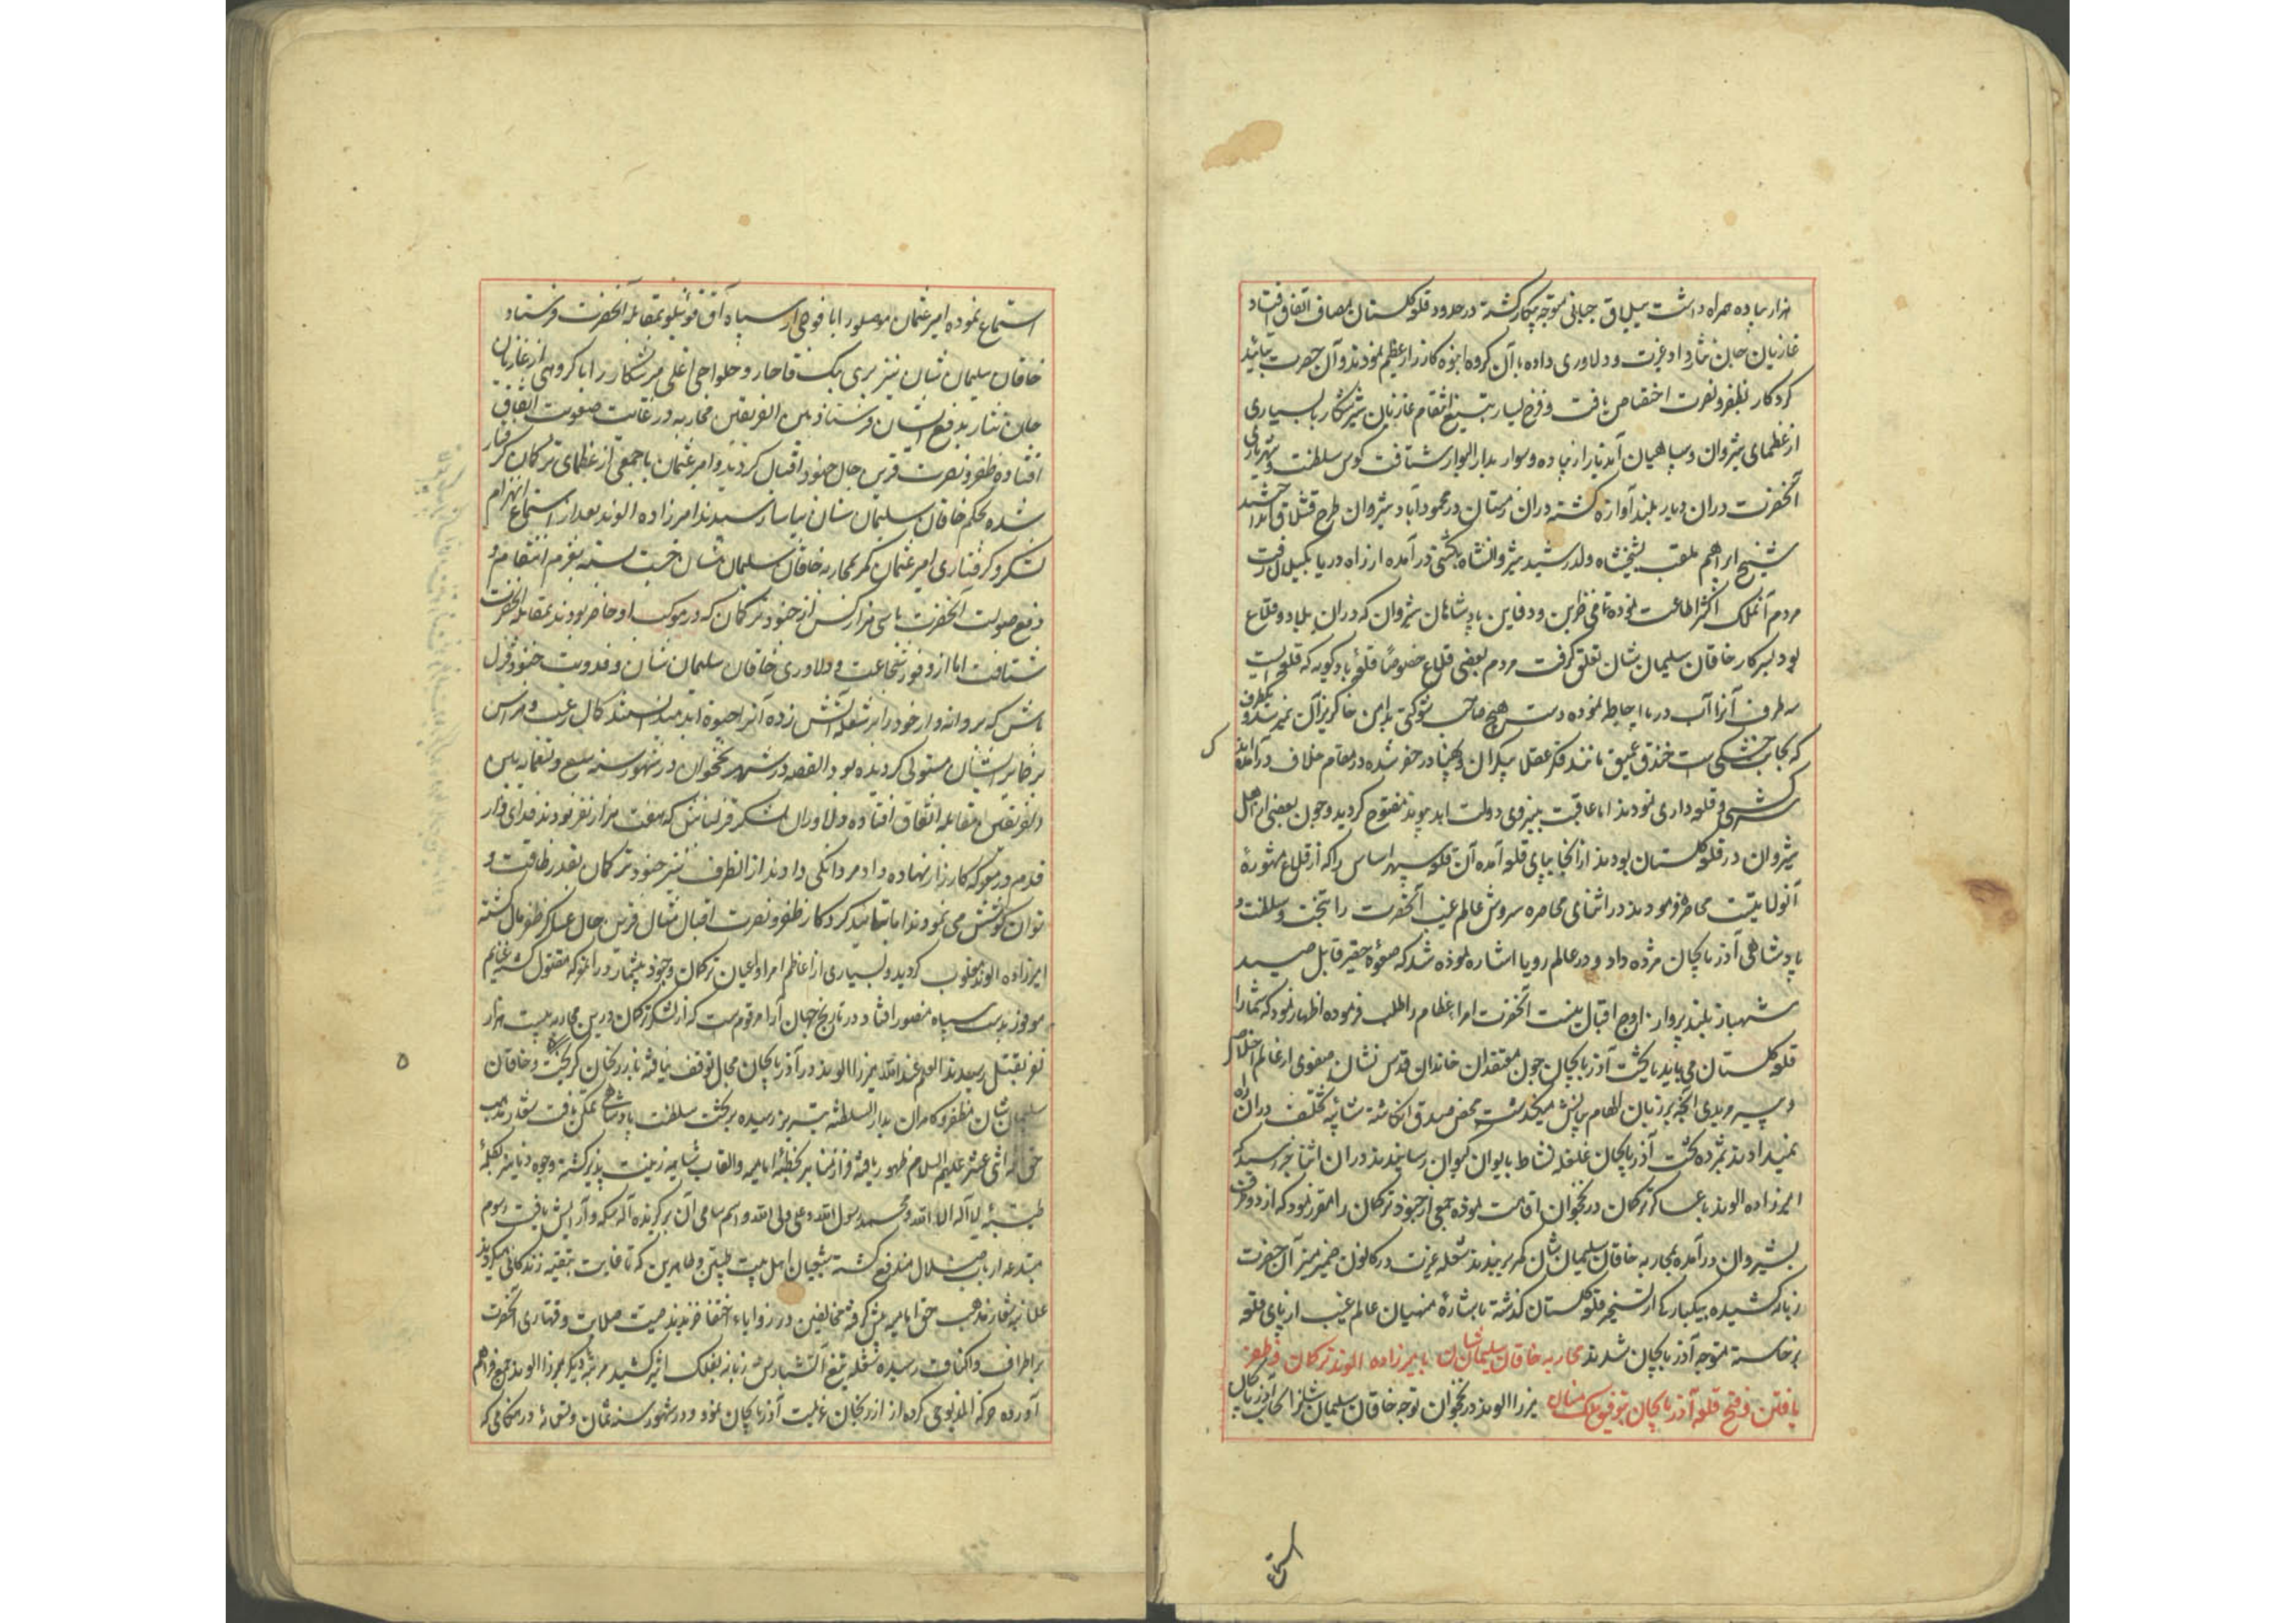 هزار پیاده همراه داشت بییلاق جبانی متوجه پیکار گشته در حدود قلعه گلستان مصاف اتفاق افتاد
غازیان جان نثار داد غیرت و دلاوری داده با آن گروه انبوه کارزار عظیم نمودند و آن حضرت بتایید
کردکار بظفر و نصرت اختصاص یافت و فرخ یسار بتیغ انتقام غازیان شیر شکار با بسیاری
از عظمای شیروان و سپاهیان آن دیار از پیاده و سوار بدار البوار شتافت کوس سلطنت و شهریاری
آنحضرت در آن دیار بلند آوازه گشته در آن زمستان در محمودآباد شیروان طرح قشلاق انداختند
شیخ ابراهیم ملقب بشیخشاه ولد رشید شیروانشاه بکشتی در آمده از راه دریا بگیلان رفت
مردم آنملک اکثر اطاعت نموده تمامی خزاین و دفاین پادشاهان شیروان که در آن بلاد و قلاع
بود بسرکار خاقان سلیمان شان تعلق گرفت مردم بعضی قلاع خصوصا قلعه بادکوبه که قلعه ایست
سه طرف آنرا آب دریا احاطه نموده دست هیچ صاحب شوکتی بدامن خاکریز آن نمیرسد و یکطرف
که بجانب خشکی است خندق عمیق مانند فکر عقلا بیکران و پهناور حفر شده در مقام خلاف در آمده
سرکشی و قلعه داری نمودند اما عاقبت بنیروی دولت ابد پیوند مفتوح گردید و چون بعضی از اهل
شیروان در قلعه گلستان بودند از آنجا بپای قلعه آمده آن قلعه سپهر اساس را که از قلاع مشهوره
آنولایتست محاصره فرمودند در اثنای محاصره سروش عالم غیب آنحضرت را بتخت و سلطنت و
پادشاهی آذربایجان مژده داد و در عالم رویا اشاره نموده شد که صعوه حقیر قابل صید
شهباز بلند پرواز اوج اقبال نیست آنحضرت امراء عظام را طلب فرموده اظهار نمود که شما را
قلعه گلستان می باید یا تخت آذربایجان چون معتقدان خاندان قدس نشان صفوی از عالم اخلاص
و پیر مریدی آنچه بر زبان الهام بیانش میگذشت محض صدق انگاشته شائبه تخلف در آن راه
نمیدادند بمژده تخت آذربایجان غلغله نشاط بایوان کیوان رسانیدند در آن اثنا خبر رسید که
امیرزاده الوند با عساکر ترکمان در نخجوان اقامت نموده جمعی از جنود ترکمان را مقرر نمود که از دو طرف
بشیروان در آمده بمحاربه خاقان سلیمان شان کمر بربندند شعله غیرت در کانون ضمیر منیر آن حضرت
زبانه کشیده بیکبارگی از تسخیر قلعه گلستان گذشته باشاره منهیان عالم غیب از پای قلعه
برخاسته متوجه آذربایجان شدند محاربه خاقان سلیمان شان با میرزاده الوند ترکمان و ظفر
یافتن و فتح قلعه آذربایجان بتوفیق ملک منان میرزا الوند در نخجوان توجه خاقان سلیمان شانرا بجانب آذربایجان
استماع
استماع نموده امیر عثمان موصلو را با فوجی از سپاه آق قوینلو بمقابله آنحضرت فرستاد
خاقان سلیمان شان نیز پیری بیک قاجار و حلواچی اغلی میر شکار را با گروهی از غازیان
جان نثار بدفع ایشان فرستاد بین الفریقین محاربه در غایت صعوبت اتفاق
افتاده ظفر و نصرت قرین حال جنود اقبال گردید و امیر عثمان با جمعی از عظمای ترکمان گرفتار
شده بحکم خاقان سلیمان شان بیاسا رسیدند امیرزاده الوند بعد از استماع انهزام
لشکر و گرفتاری امیر عثمان کمر بمحاربه خاقان سلیمان شان چست بسته بعزم انتقام و
دفع صولت آنحضرت با سی هزار کس از جنود ترکمان که در موکب او حاضر بودند بمقابله آنحضرت
شتافت اما از وفور شجاعت و دلاوری خاقان سلیمان شان و فدویت جنود قزل
باش که پروانه وار خود را بر شعله آتش زده آنرا حیوة ابد میدانستند کمال رعب و هراس
بر ضمایر ایشان مستولی گردیده بود القصه در شهر نخجوان در شهور سنه سبع و تسعمائه بین
الفریقین مقابله اتفاق افتاده دلاوران لشکر قزلباش که هفت هزار نفر بودند فدائی وار
قدم در معرکه کارزار نهاده داد مردانگی دادند از انطرف نیز جنود ترکمان بقدر طاقت و
توان کوشش می نمودند اما بتائید کردکار ظفر و نصرت اقبال مثال قرین حال عساکر ظفر مآل گشته
امیرزاده الوند مغلوب گردید و بسیاری از اعاظم امرا و اعیان ترکمان و جنود بیشمار در آنمعرکه مقتول گشته غنایم
موفور بدست سپاه منصور افتاد و در تاریخ جهان آرا مرقوم است که از لشکر ترکمان درین محاربه بیست هزار
نفر بقتل رسیدند العلم عند الله میرزا الوند در آذربایجان مجال توقف نیافته بارزنجان گریخت و خاقان
سلیمان شان مظفر و کامران بدار السلطنه تبریز رسیده بر تخت سلطنت پادشاهی تمکن یافت شعار مذهب
حق ائمه اثنی عشر علیهم السلام ظهور یافته فراز منابر بخطبه امامیه والقاب شاهیه زینت پذیر گشته وجوه دنانیر بکلمه
طیبه لا اله الا الله و محمد رسول الله و علی ولی الله و اسم سامی آن برگزیده اله سکه و آرایش یافت رسوم
مبتدعه ارباب ضلال مندفع گشته شیعیان اهل بیت طیبین و طاهرین که تا غایت بتقیه زندگانی میکردند
علانیه شعار مذهب حق امامیه پیش گرفته مخالفین در زوایاء اختفا خزیدند صیت صلابت و قهاری آنحضرت
بر اطراف و اکناف رسیده شعله تیغ آتشبارش زبانه بفلک اثیر کشید مرتبه دیگر میرزا الوند جمع فراهم
آورده حرکه المذبوحی کرده از ارزنجان عزیمت آذربایجان نمود و در شهور سنه ثمان و تسعمائه در هنگامی که